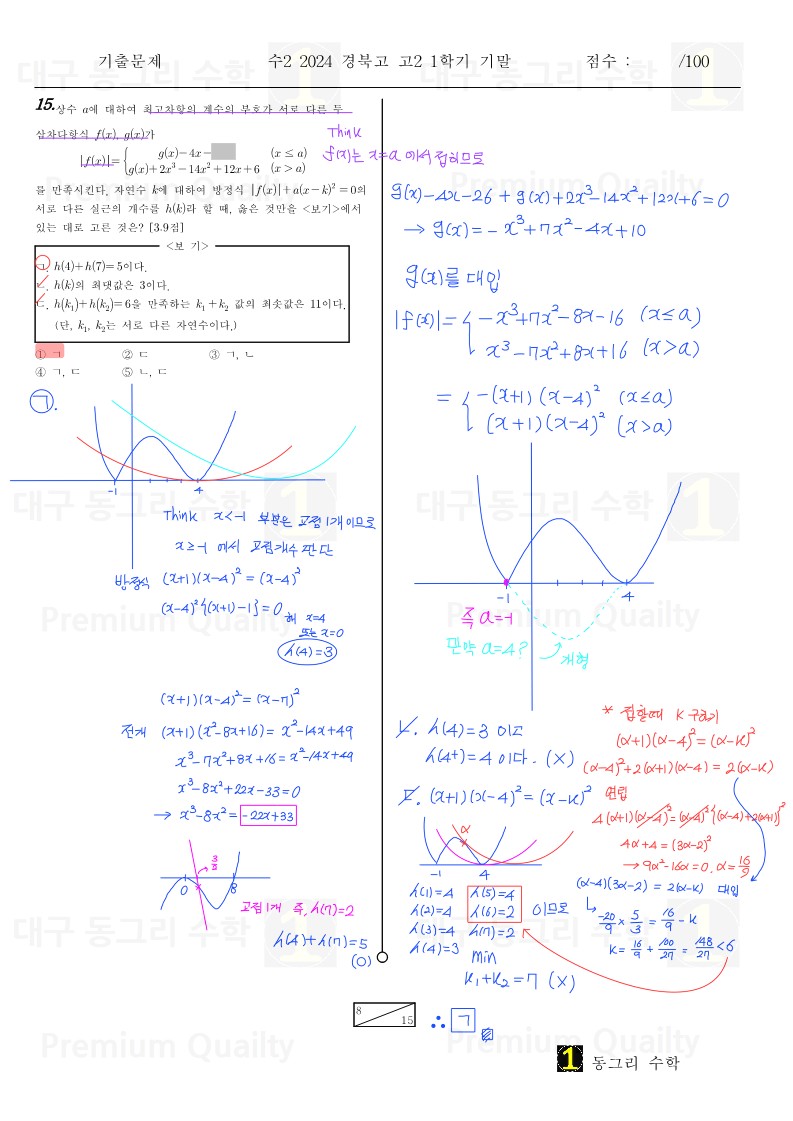 기출문제 수2 2024 경북고 고2 1학기 기말 점수 : /100
15. 상수 a에 대하여 최고차항의 계수의 부호가 서로 다른 두
삼차다항식 f(x), g(x)가
|f(x)|={ g(x)-4x- (x≤a)
g(x)+2x³-14x²+12x+6 (x>a)
를 만족시킨다. 자연수 k에 대하여 방정식 |f(x)|+a(x-k)²=0의
서로 다른 실근의 개수를 h(k)라 할 때, 옳은 것만을 <보기>에서
있는 대로 고른 것은? [3.9점]
<보 기>
ㄱ. h(4)+h(7)=5이다.
ㄴ. h(k)의 최댓값은 3이다.
ㄷ. h(k₁)+h(k₂)=6을 만족하는 k₁+k₂ 값의 최솟값은 11이다.
(단, k₁, k₂는 서로 다른 자연수이다.)
① ㄱ ② ㄷ ③ ㄱ, ㄴ
④ ㄱ, ㄷ ⑤ ㄴ, ㄷ
ㄱ.
-1 4
Think x<-1 부분은 교점 1개이므로
x≥-1 에서 교점개수 판단
방정식 (x+1)(x-4)²=(x-4)²
(x-4)²{(x+1)-1}=0
해 x=4
또는 x=0
h(4)=3
(x+1)(x-4)²=(x-7)²
전개 (x+1)(x²-8x+16)=x²-14x+49
x³-7x²+8x+16=x²-14x+49
x³-8x²+22x-33=0
→ x³-8x²=-22x+33
3/2
0 8
교점1개 즉, h(7)=2
h(4)+h(7)=5
(O)
Think
f(x)는 x=a 에서 접하므로
g(x)-4x-26+g(x)+2x³-14x²+12x+6=0
→ g(x)=-x³+7x²-4x+10
g(x)를 대입
|f(x)|={ -x³+7x²-8x-16 (x≤a)
x³-7x²+8x+16 (x>a)
={ -(x+1)(x-4)² (x≤a)
(x+1)(x-4)² (x>a)
-1 4
즉 a=-1
만약 a=4?
개형
ㄴ. h(4)=3 이고
h(4+)=4 이다. (X)
* 접할때 K 구하기
(α+1)(α-4)²=(α-K)²
(α-4)²+2(α+1)(α-4)=2(α-K)
연립
4(α+1)(α-4)²=(α-4)²{(α-4)+2(α+1)}²
4α+4=(3α-2)²
→ 9α²-16α=0, α=16/9
(α-4)(3α-2)=2(α-K) 대입
-20/9 × 5/3 = 16/9 - K
K=16/9+100/27=148/27<6
ㄷ. (x+1)(x-4)²=(x-K)²
α
-1 4
h(1)=4 h(5)=4
h(2)=4 h(6)=2 이므로
h(3)=4 h(7)=2
h(4)=3 min
K₁+K₂=7 (X)
8
15
∴ ㄱ
1 동그리 수학
대구 동그리 수학 1
Premium Quailty